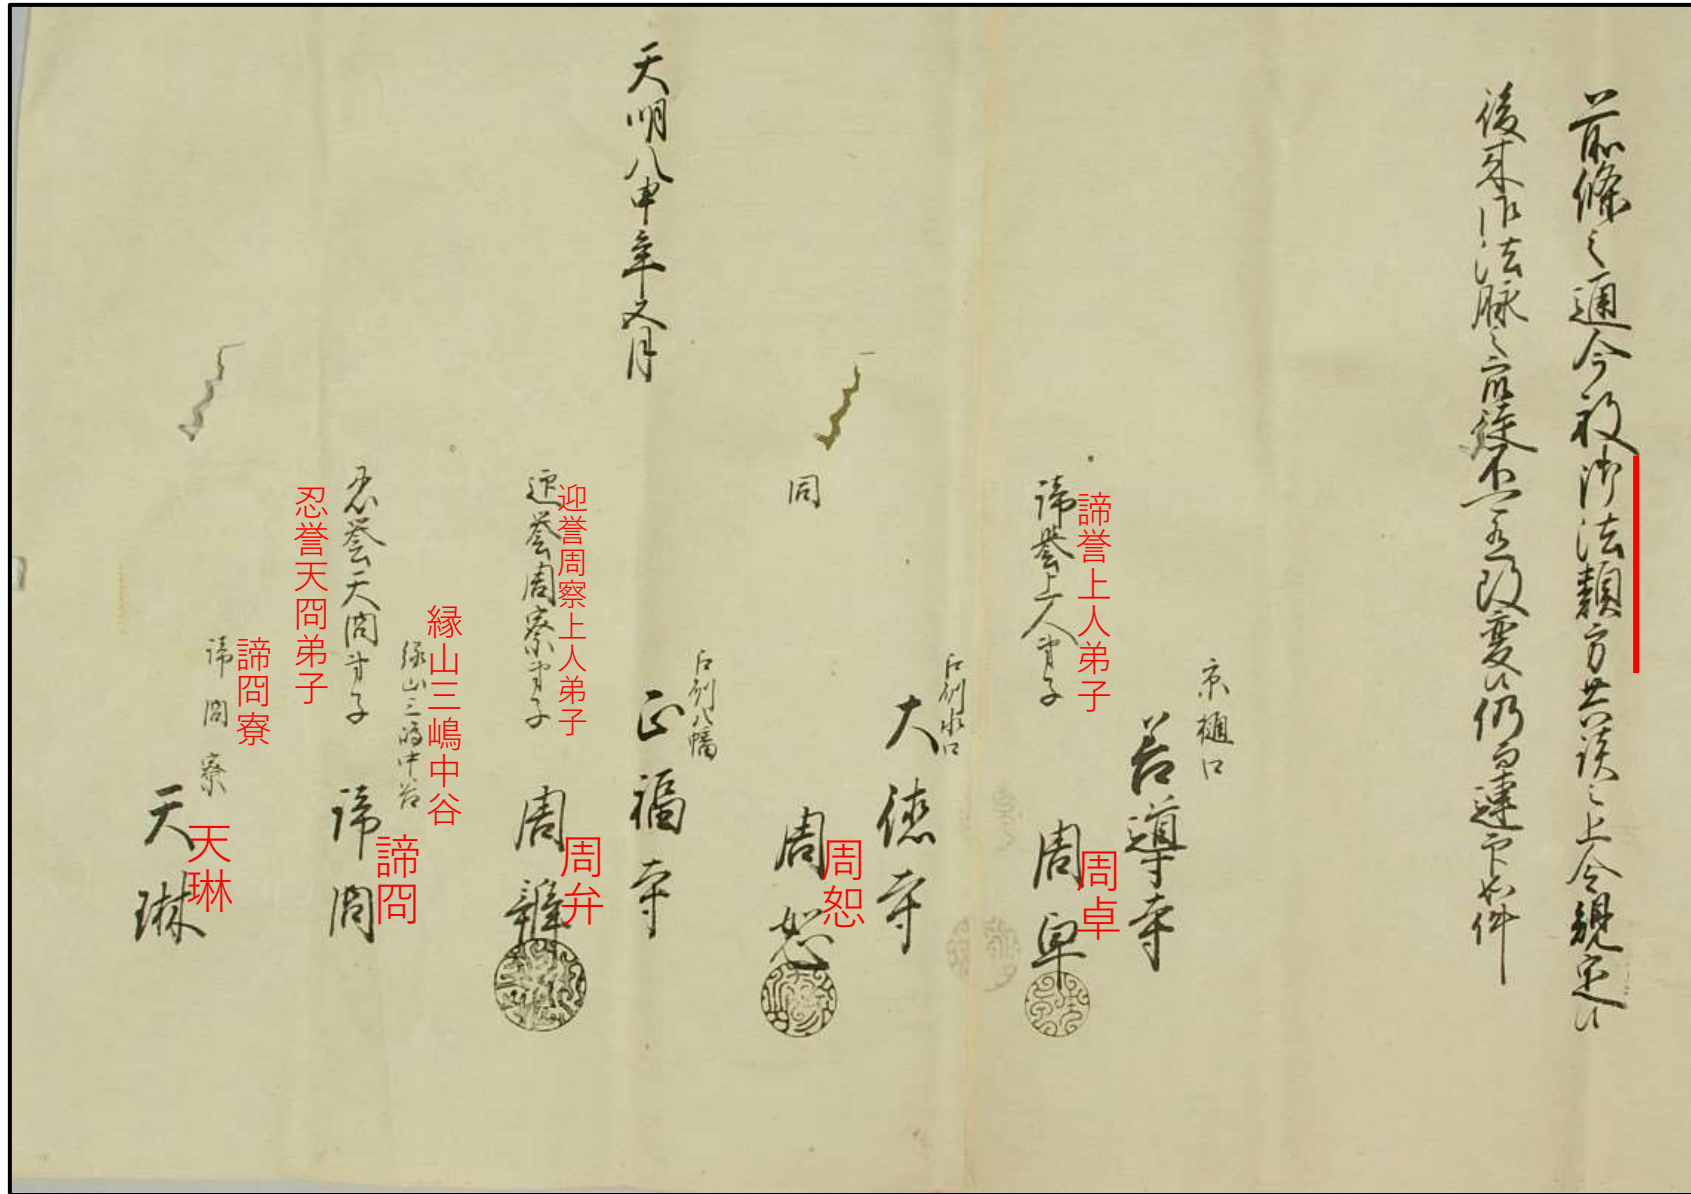 前條之通今般御法類方共談之上令規定候
後来作法脉之宗徒不可有改変候仍而連印如件
京樋口
善導寺
諦誉上人弟子
諦誉上人弟子
周卓
周卓
江州水口
大徳寺
同
周恕
周恕
天明八申年五月
江州八幡
正福寺
迎誉周察上人弟子
迎誉周察弟子
周辨
周弁
縁山三嶋中谷
縁山三嶋中谷
忍誉天冏弟子
忍誉天冏弟子
諦冏
諦冏
諦冏寮
諦冏寮
天琳
天琳